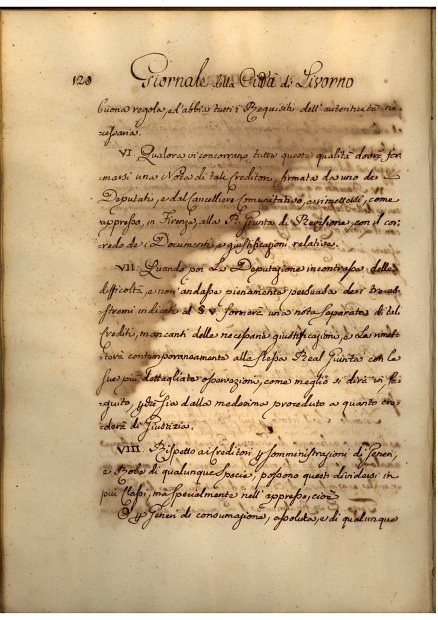 128 Giornale della Città di Livorno
buona regola, ed abbia tutti i Requisiti dell'autenticità ne-
cessaria.
VI Qualora vi concorrano tutte queste qualità dovrà for-
marsi una Nota di tali Creditori, firmata da uno de'
Deputati, e dal Cancelliere Comunitativo, a rimettersi, come
appresso, in Firenze, alla R. Giunta di Revisione, con il cor-
redo de' Documenti, e giustificazioni relative.
VII Quando poi la Deputazione incontrasse delle
difficoltà, e non andasse pienamente persuasa dei
estremi indicati al § V formerà una nota separata di tal
Crediti, mancanti delle necessarie giustificazioni, e la rimet-
terà contemporaneamente alla stessa Real Giunta con le
sue più dettagliate osservazioni, come meglio si dirà in se-
guito, sia dalla medesima proceduto a quanto cre-
derà di Giustizia.
VIII Rispetto ai Creditori p somministrazioni di Generi,
e Robe di qualunque Specie, possono questi dividersi in
più Classi, ma specialmente nell'appresso, cioè
p Generi di consumazione, assoluta, e di qualunque